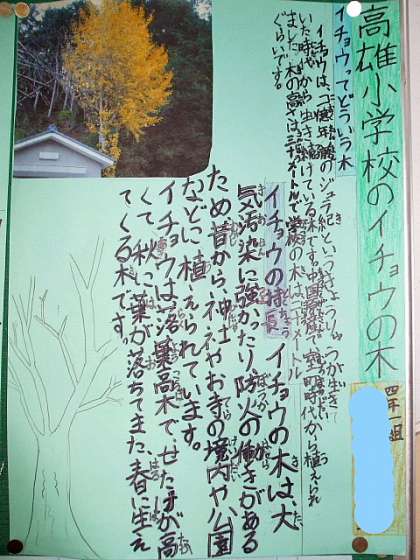 高雄小学校のイチョウの木
四年一組
イチョウってどういう木
イチョウは、一億年前のジュラ紀というきょうりゅうが生き
いた時代から生き続けている木です。中国原産で室町時代から植えられ
ました。木の高さは三十メートルで学校の木は
ぐらいです。
イチョウの特長
イチョウの木は大
気汚染に強かたり防火の働きがある
ため昔から、神社やお寺の境内や公園
などに植えられています。
イチョウは落葉高木で、せたけが高
くて秋に葉が落ちてまた、春に生え
てくる木です。